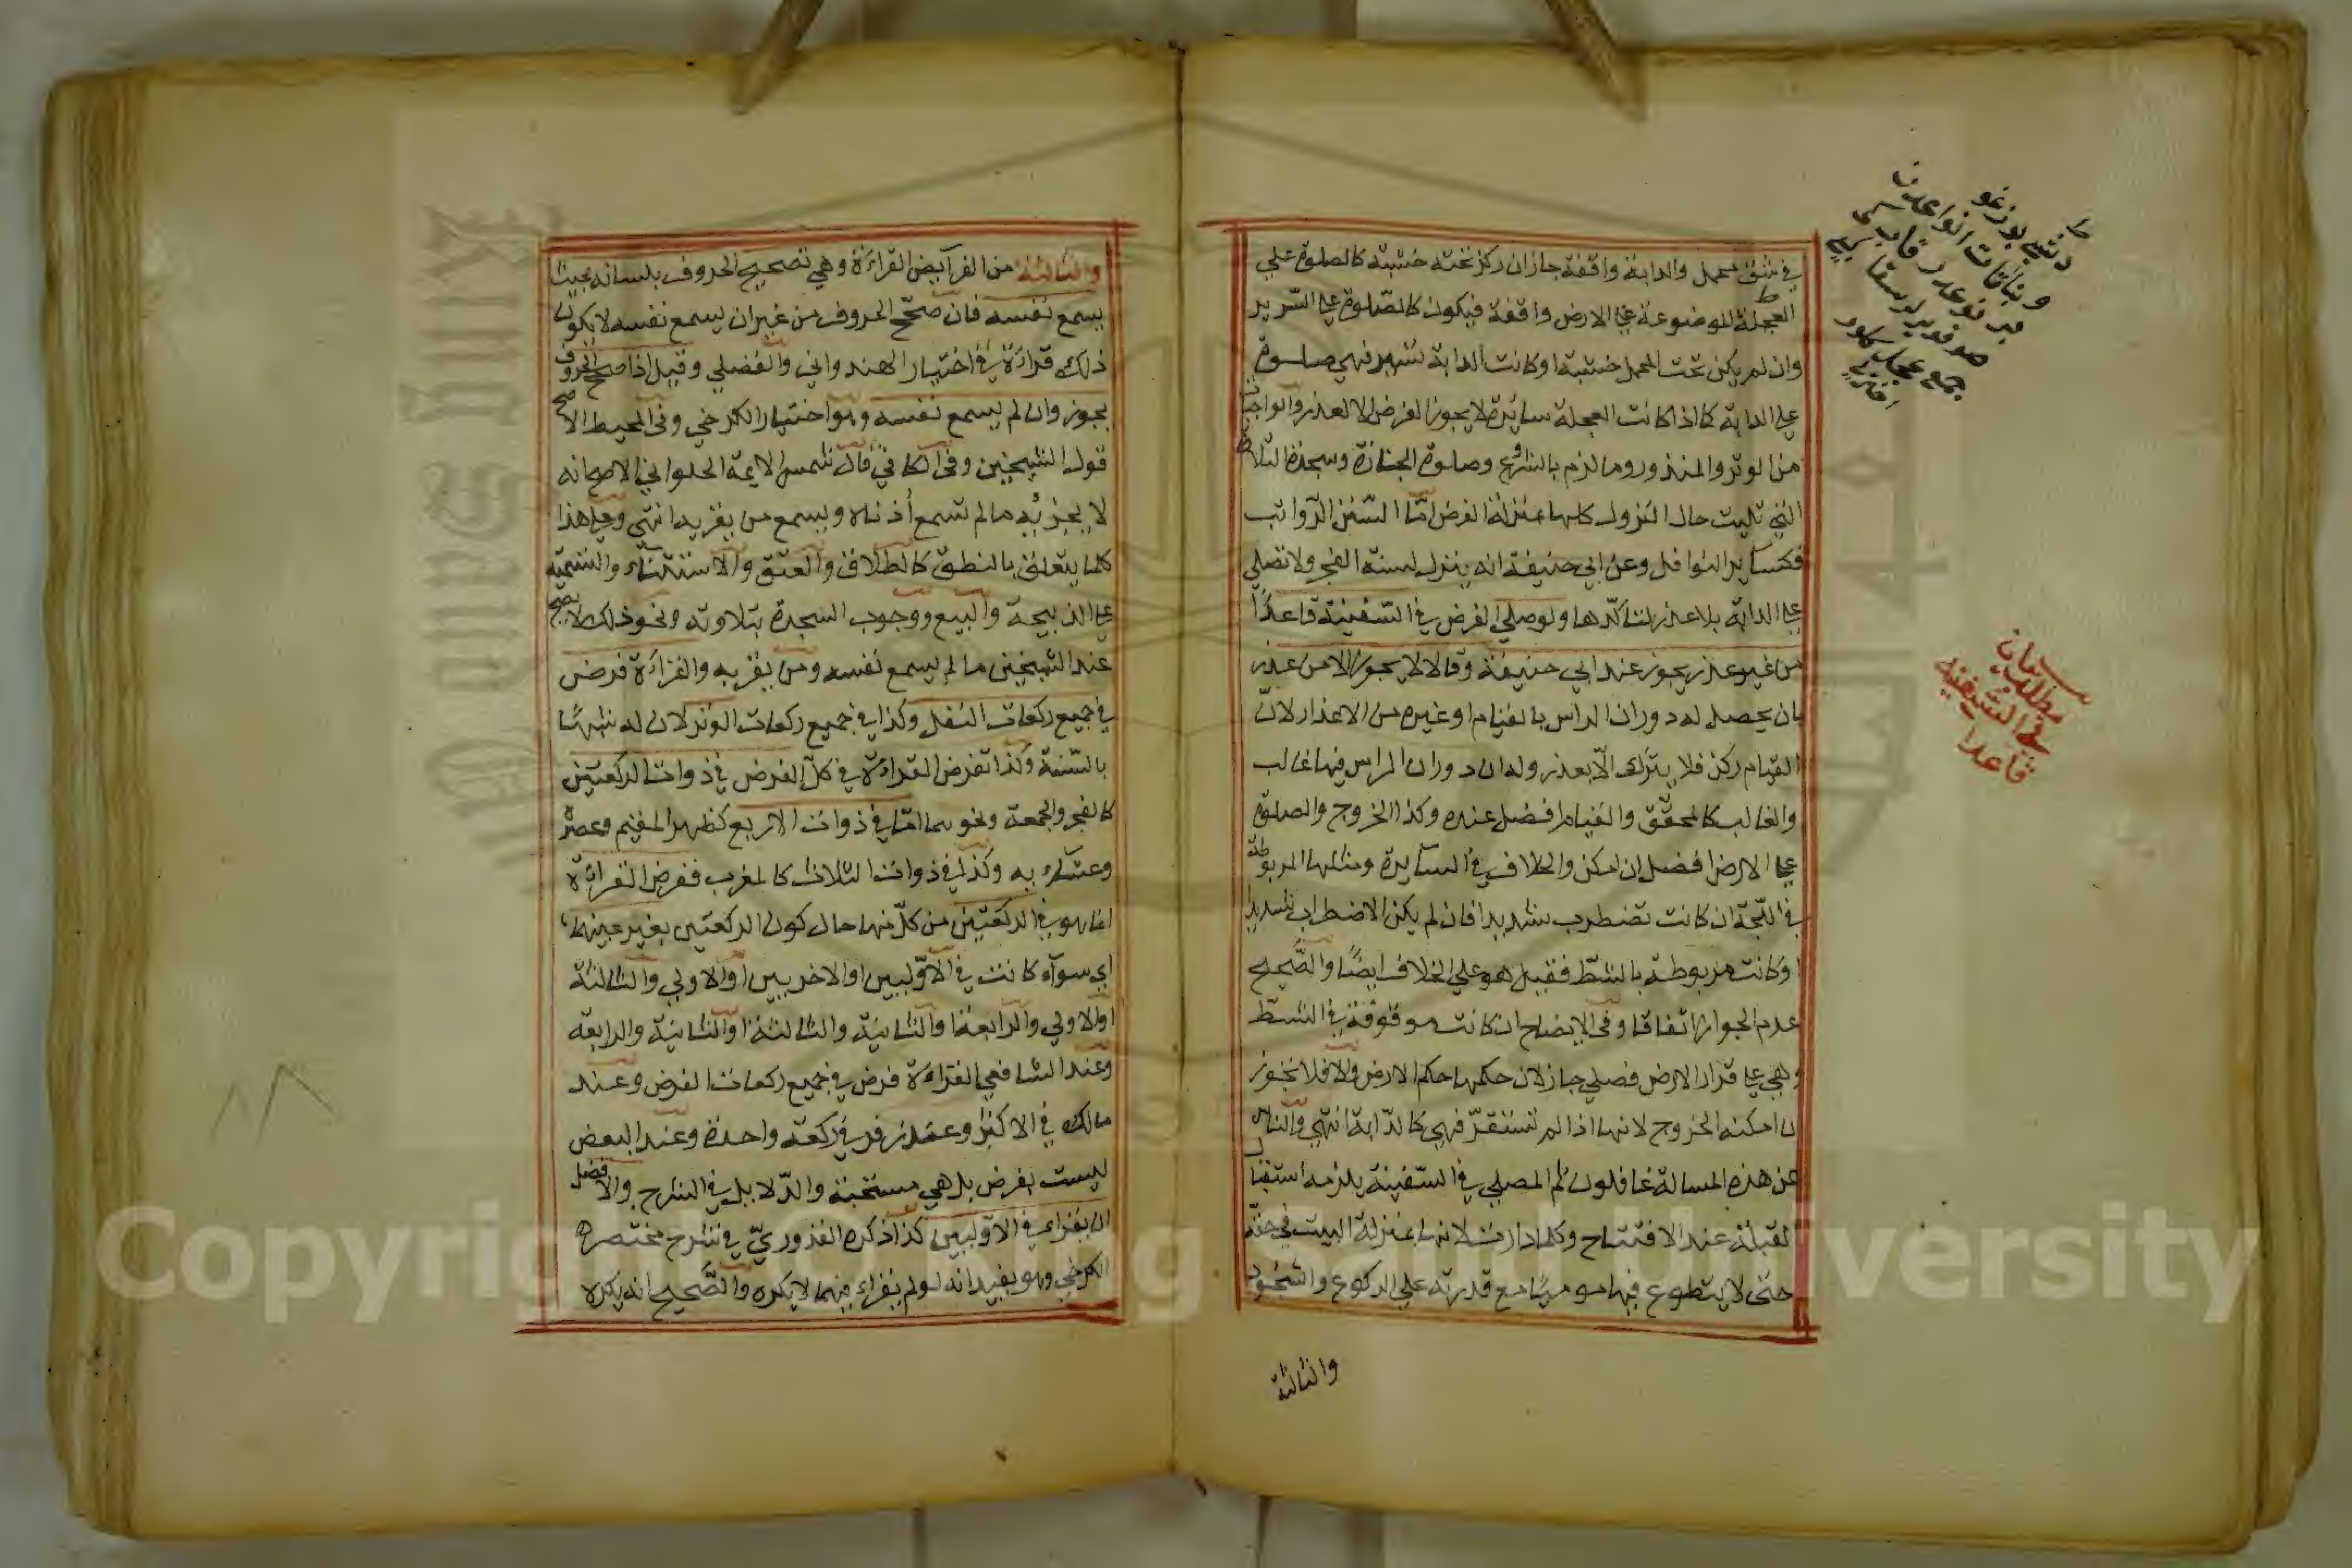 في شق محمل والدابة واقفة جاز ان ركز تحته خشبة كالصلوة علي
العجلة الموضوعة علي الارض واقفة فيكون كالصلوة علي السرير
وان لم يكن تحت المحمل خشبة او كانت الدابة تسير فهي صلوة
علي الدابة كما اذا كانت العجلة سائرة لا يجوز الفرض الا لعذر والواجبات
من الوتر والمنذور وما لزم بالشروع وصلوة الجنازة وسجدة التلاوة
التي تليت حال النزول كلها بمنزلة الفرض امّا السنن الرّواتب
فكسائر النوافل وعن ابي حنيفة انه ينزل لسنة الفجر ولا تصلي
علي الدابة بلا عذر لتاكّدها ولو صلي الفرض في السفينة قاعدًا
من غير عذر يجوز عند ابي حنيفة وقالا لا يجوز الا من عذر
بان يحصل له دوران الراس بالقيام او غيره من الاعذار لانّ
القيام ركن فلا يترك الّا بعذر وله ان دوران الراس فيها غالب
والغالب كالمحقّق والقيام افضل عنده وكذا الخروج والصلوة
علي الارض افضل ان امكن والخلاف في السايرة ومثلها المربوطة
في اللّجة ان كانت تضطرب شديدا فان لم يكن الاضطراب شديدا
او كانت مربوطة بالشطّ فقيل هو علي الخلاف ايضًا والصّحيح
عدم الجواز اتفاقا وفي الايضاح ان كانت موقوفة في الشطّ
وهي علي قرار الارض فصلي جاز لان حكمها حكم الارض والا فلا تجوز
ان امكنه الخروج لانها اذا لم تستقرّ فهي كالدّابة انتهي والناس
عن هذه المسالة غافلون ثم المصلي في السّفينة يلزمه استقبال
القبلة عند الافتتاح وكلما دارت لانها بمنزلة البيت في حقّه
حتّى لا يتطوع فيها موميًا مع قدرته علي الركوع والسّجود
والثالثة
مطلب بيان
في السّفينة
قاعدا
والثالثة من الفرآيض القراءة وهي تصحيح الحروف بلسانه بحيث
يسمع نفسه فان صحّح الحروف من غير ان يسمع نفسه لا يكون
ذلك قراءة في اختيار الهندواني والفضلي وقيل اذا صحح الحروف
يجوز وان لم يسمع نفسه وهو اختيار الكرخي وفي المحيط الاصح
قول الشيخين وفي الكافي قال شمس الايمّة الحلواني الاصح انه
لا يجزيه ما لم تسمع أذناه ويسمع من بقربه انتهي وعلي هذا
كلما يتعلق بالنطق كالطلاق والعتق والاستثناء والتسمية
علي الذبيحة والبيع ووجوب السجدة بتلاوته ونحو ذلك لا يصح
عند الشيخين ما لم يسمع نفسه ومن بقربه والقراءة فرض
في جميع ركعات النفل وكذا في جميع ركعات الوتر لان له شبهًا
بالسّنة وكذا تفرض القراءة في كلّ الفرض في ذوات الركعتين
كالفجر والجمعة ونحوهما امّا في ذوات الاربع كظهر المقيم وعصره
وعشاءيه وكذا في ذوات الثلاث كالمغرب ففرض القراءة
انما هو في الركعتين من كلّ منها حال كون الركعتين بغير عينهما
اي سوآء كانت في الاوّليين او الاخريين او الاولي والثالثة
او الاولي والرابعة او الثانية والثالثة او الثانية والرابعة
وعند الشافعي القراءة فرض في جميع ركعات الفرض وعند
مالك في الاكثر وعند زفر في ركعة واحدة وعند البعض
ليست بفرض بل هي مستحبة والدّلايل في الشرح والافضل
ان يقراء في الاوّليين كذا ذكره القدوريّ في شرح مختصره
الكرخي وهو يفيد انه لو لم يقراء فيهما لا يكره والصّحيح انه يكره
Copyright © King Saud University